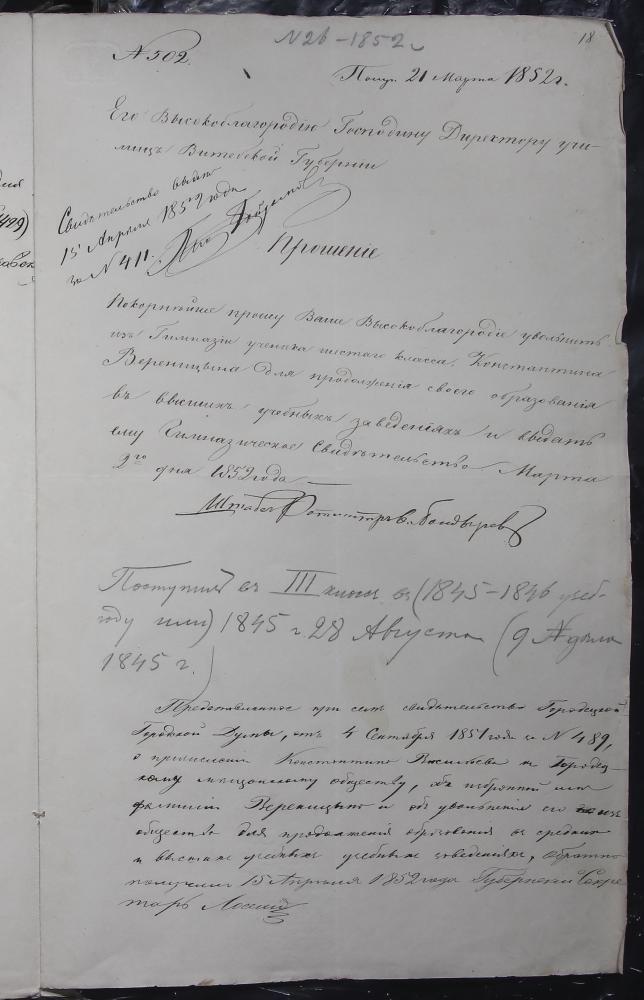 N 26 – 1852 г
18
№ 502.
Получ. 21 Марта 1852 г.
Его Высокоблагородію Господину Директору учи-
лищъ Витебской Губерніи
Свидѣтельство выдано
15 Апрѣля 1852 года
за № 411.
Прошеніе
Покорнѣйше прошу Ваше Высокоблагородіе увольнить
изъ Гимназіи ученика шестаго класса, Константина
Вереницына для продолженія своего образованія
въ высшихъ учебныхъ заведеніяхъ и выдать
ему Гимназическое Свидѣтельство. Марта
дня 1852 года
Штабъ Ротмистръ Болдыревъ
Поступил в III класс в (1845–1846 учеб-
году или) 1845 г. 28 Августа (9 № дѣла
1845 г.)
Представленное при семъ свидѣтельство Городецкой
Городской Думы, отъ 4 Сентября 1851 года за № 489,
о причисленіи Константина Васильева къ Городец-
кому мѣщанскому обществу, объ избранной им
фамиліи Вереницынъ и объ увольненіи его изъ
общества для продолженія образованія въ среднихъ
и высшихъ учебныхъ учебныхъ заведеніяхъ, обратно
получилъ 15 Апрѣля 1852 года Губернскій Секре
тарь